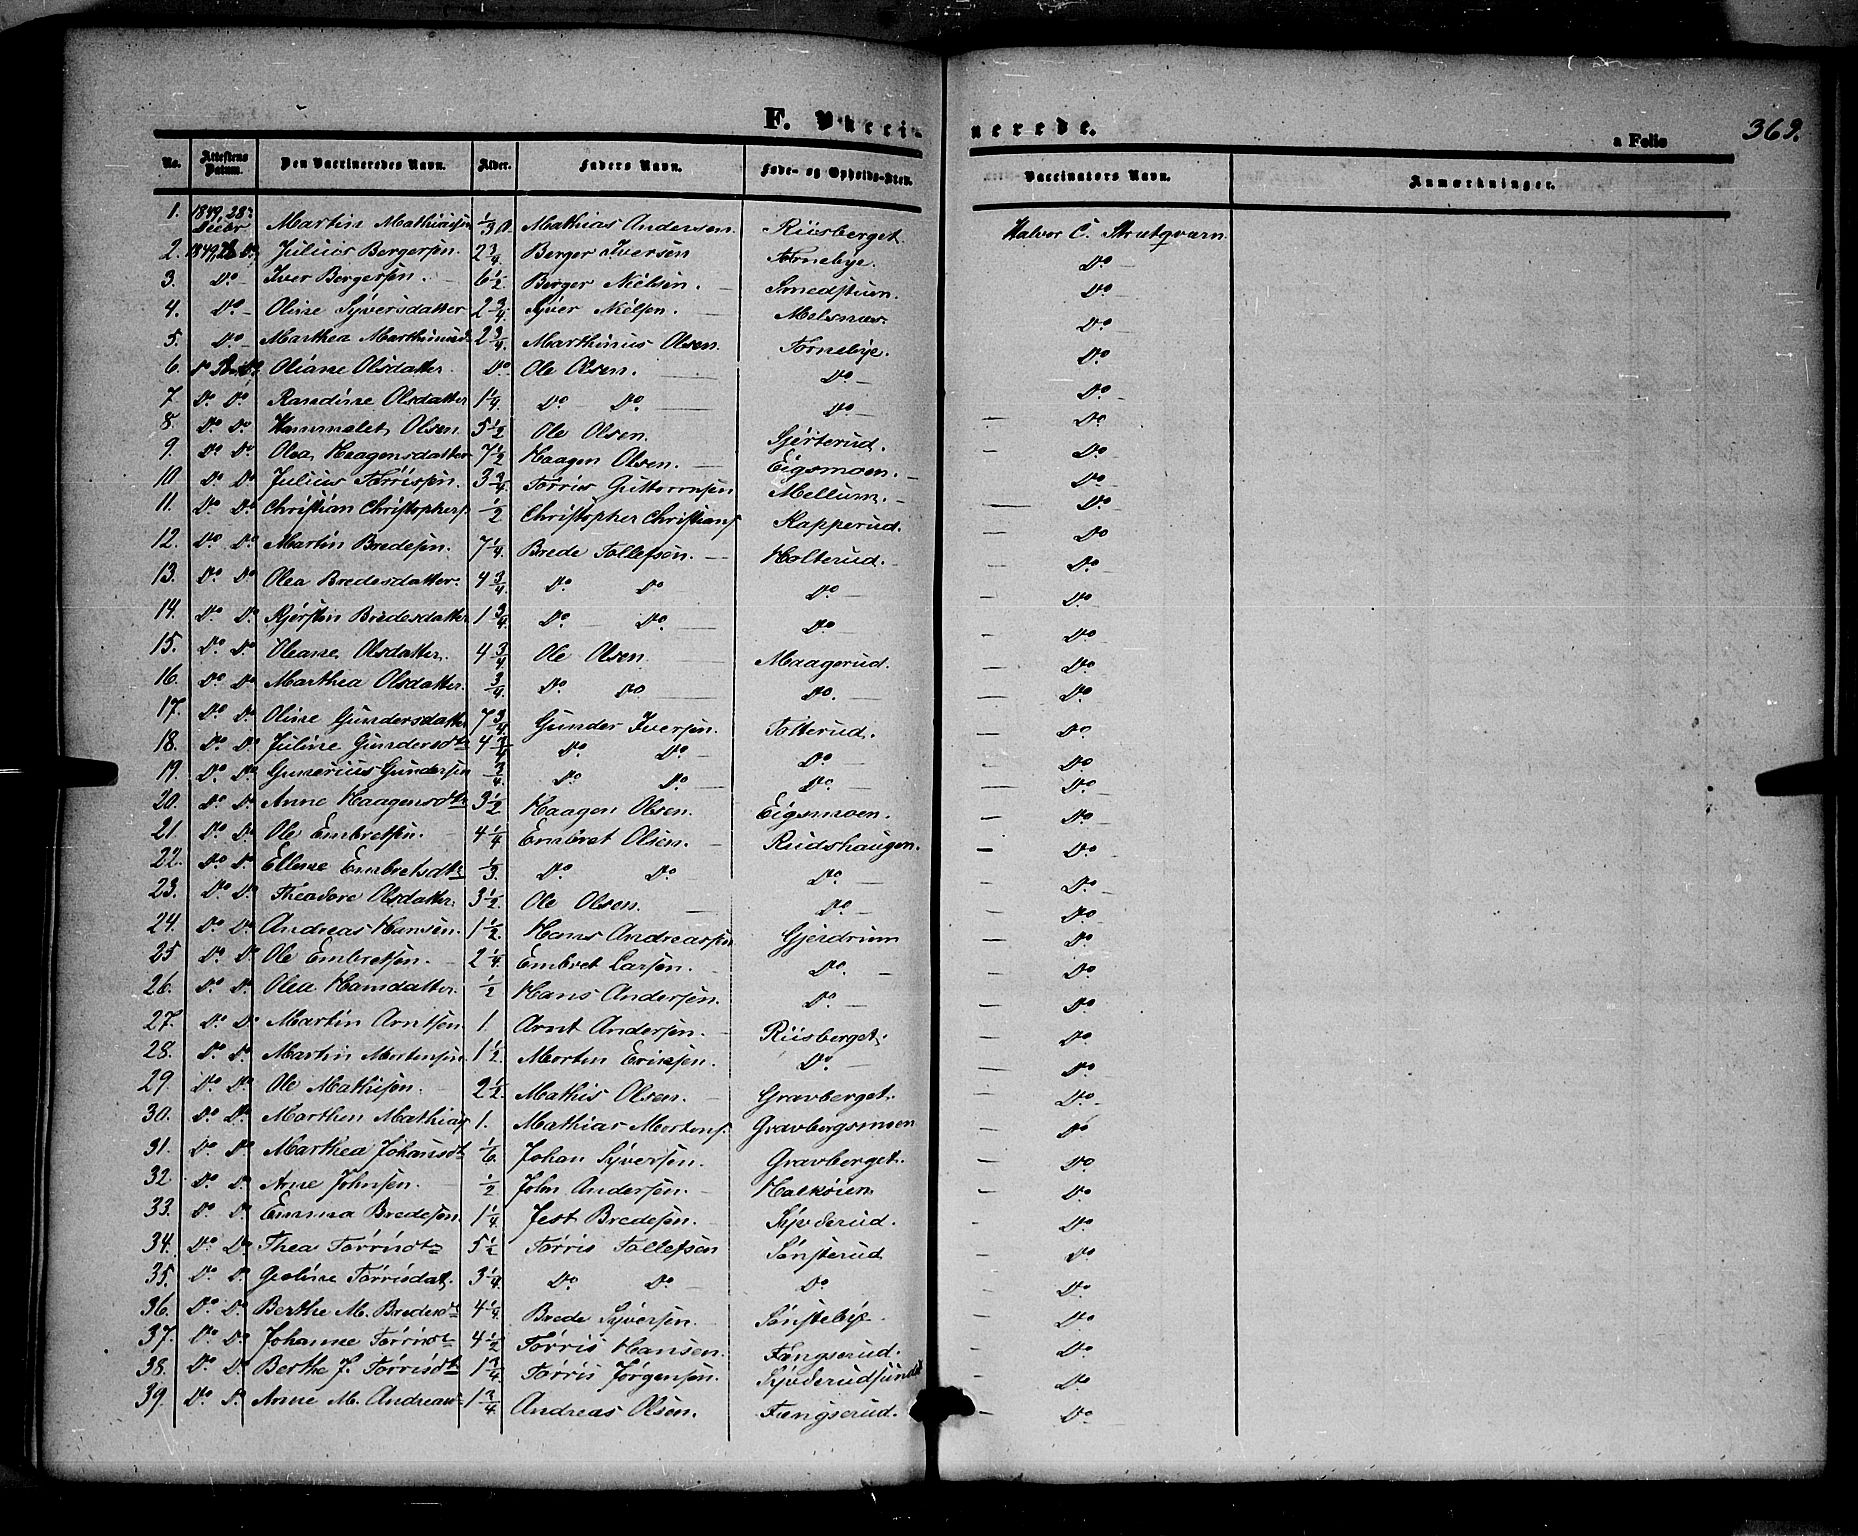 F. Vacci- nerede.
a Folio 369.
No. Attestens Datum. Den Vaccineredes Navn. Alder. Faders Navn. Føde- og Opholds-Sted. Vaccinators Navn. Anmærkninger.
1. 1849, 28 Decbr Martin Mathiassen 1/3 A. Mathias Andersen. Riisberget. Halvor C. Strutqværn
2. 1849, 28 Do Julius Bergersen. 2 3/4. Berger Iversen Tørnebye. Do
3. Do Iver Bergersen. 6 1/2. Berger Nielsen. Smedstuen. Do
4. Do Oline Syversdatter 2 3/4. Syver Nielsen. Melsnæs. Do
5. Do Marthea Marthinusd 2 3/4. Marthinus Olsen. Tørnebye. Do
6. Do Oliane Olsdatter. Do Ole Olsen. Do Do
7. Do Do Randine Olsdatter 1 1/4. Do Do. Do Do
8. Do Do Hammalet Olsen. 5 1/2 Ole Olsen. Sjerterud. Do
9. Do Do Olea Haagensdatter 7 1/2 Haagen Olsen. Eigsmoen. Do
10. Do Do Julius Tørrissen. 3 3/4. Tørris Guttormsen Mellum. Do
11. Do Do Christian Christophers 1/2 Christopher Christians Kapperud. Do
12. Do Do Martin Bredesen. 7 1/4. Brede Tollefsen. Holterud. Do
13. Do Do Olea Bredesdatter. 4 3/4. Do Do Do Do
14. Do Do Kjersten Bredesdatter 1 3/4. Do Do. Do Do
15. Do Do Oleane Olsdatter. 4 3/4 Ole Olsen Maagerud. Do
16. Do Do Marthea Olsdatter. 3/4. Do Do Do. Do
17. Do Do Oline Gundersdatter 7 3/4. Gunder Iversen. Totterud. Do
18. Do Do Juline Gundersdtr 4 3/4 Do Do. Do Do
19. Do Do Gunerius Gundersen 3/4. Do Do. Do Do
20. Do Do Anne Haagensdtr 3 1/2 Haagen Olsen. Eigsmoen. Do
21. Do Do Ole Embretsen. 4 1/4 Embret Olsen. Rudshaugen. Do
22. Do Do Ellene Embretsdtr 1/3. Do Do Do Do
23. Do Do Theodore Olsdatter. 3 1/2. Ole Olsen. Do Do
24. Do Do Andreas Hansen. 1 1/2. Hans Andreassen Gjerdrum Do
25 Do Do Ole Embretsen. 2 1/4. Embret Larsen. Do. Do
26. Do Do Olea Hansdatter. 1/2 Hans Andersen. Do Do
27. Do Do Martin Arntsen. 1. Arnt Andersen. Riisberget. Do
28. Do Do Martin Mortensen 1 1/2. Morten Eriksen. Do. Do
29. Do Do Ole Mathisen. 2 1/2. Mathis Olsen. Gravberget. Do
30. Do Do Morthen Mathias 1. Mathias Mortens. Gravbergsmoen Do
31. Do Do Marthea Johansdt 1/6 Johan Syversen. Gravberget. Do
32 Do Do Arne Johnsen. 1/2 John Andersen. Halkøien Do
33. Do Do Emma Bredesen 1 1/4. Jest Bredesen. Syvderud. Do
34. Do Do Thea Tørrisdt 5 1/2 Tørris Tollefsen Sønsterud Do
35. Do Do Goline Tørrisdat. 3 1/4. Do Do Do. Do
36. Do Do Berthe M. Bredesdt 4 1/4 Brede Syversen. Sønstebye. Do
37. Do Do Johanne Tørrisdt 4 1/2 Tørris Hansen. Fængserud. Do
38. Do Do Berthe J. Tørrisdt 1 3/4 Tørris Jørgensen. Syvderudsundet Do
39. Do Do Anne M. Andreasdt 1 3/4 Andreas Olsen. Fængserud. Do